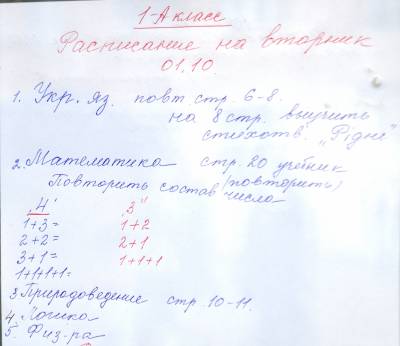 1-А класс
Расписание на вторник
01.10
1. Укр. яз. повт. стр. 6-8.
на 8 стр. выучить
стихотв. „Рідне"
2. Математика стр. 20 учебник
(повторить)
Повторить состав числа
„4" „3"
1+3= 1+2
2+2= 2+1
3+1= 1+1+1
1+1+1+1=
3 Природоведение стр. 10-11.
4. Логика
5. Физ-ра